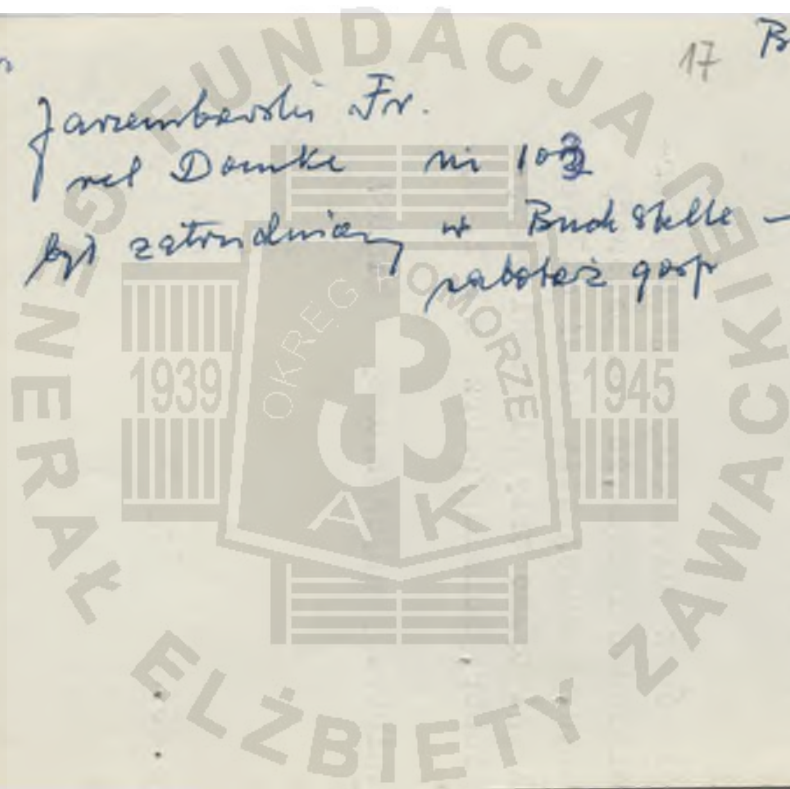 17 B
Jarzembowski Fr.
rel Domke nr 103
był zatrudniony w Buchstelle —
sabotaż gosp
FUNDACJA GENERAŁ ELŻBIETY ZAWACKIEJ
OKRĘG POMORZE
1939 1945
AK